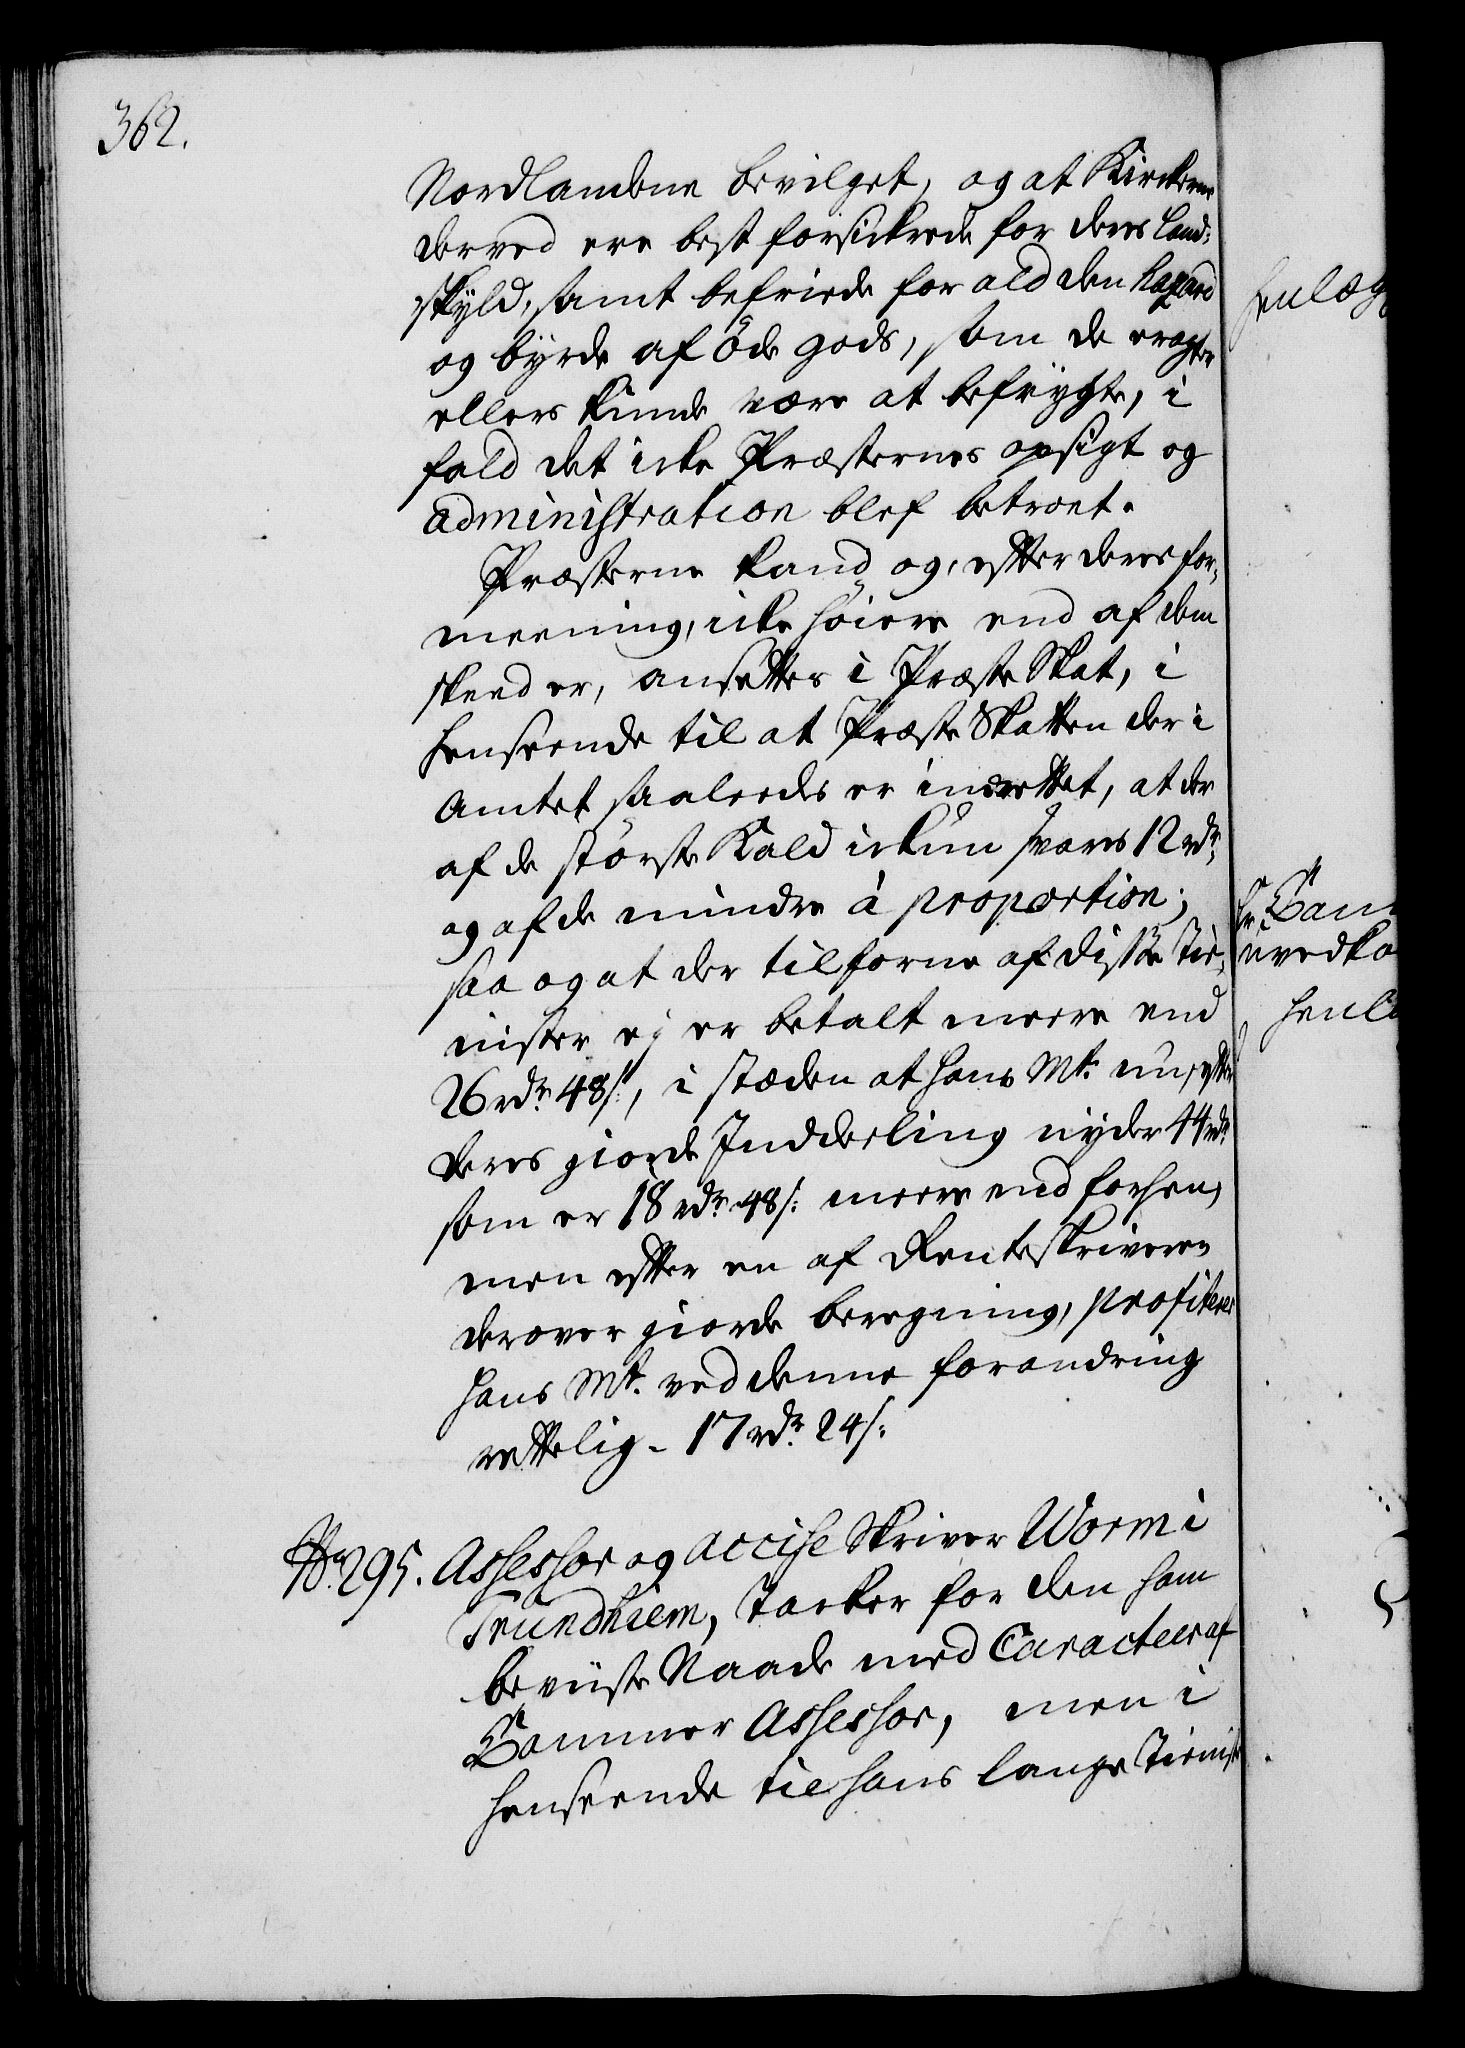 362.
Nordlandene bevilget, og at Kirkerne
derved ere best forsickrede for deres land-
skÿld, samt befriede for ald den hazard
og bÿrde af öde gods, som de
ellers kunde være at befrÿgte, i
fald det icke Præsternes opsigt og
administration blef betroet.
Præsterne kand og, efter deres for-
meening, icke höiere end af dem
skeed er, ansettes i Præste Skat, i
henseende til at Præste Skatten der i
Amtet saaleedes er indrettet, at der
af de störste Kald ickun svares 12 rdr.
og af de mindre à proportion;
saa og at der tilforne af disse Tie-
nister ej er betalt meere end
26 rdr. 48 s:, i stæden at hans Mt. nu, efter
deres giorde Inddeeling nÿder 44 rdr
som er 18 rdr. 48 s: meere end forhen,
men efter en af Renteskriveren
derover giorde beregning, profiterer
hans Mt. ved denne forandring
rettelig - 17 rdr. 24 s:
No. 295. Assessor og accise Skriver Worm i
Trundhiem, Tacker for den ham
beviiste Naade med Caracteer af
Cammer Assessor, men i
henseende til hans lange Tienist
henlæg
Cam
uvedko
henl